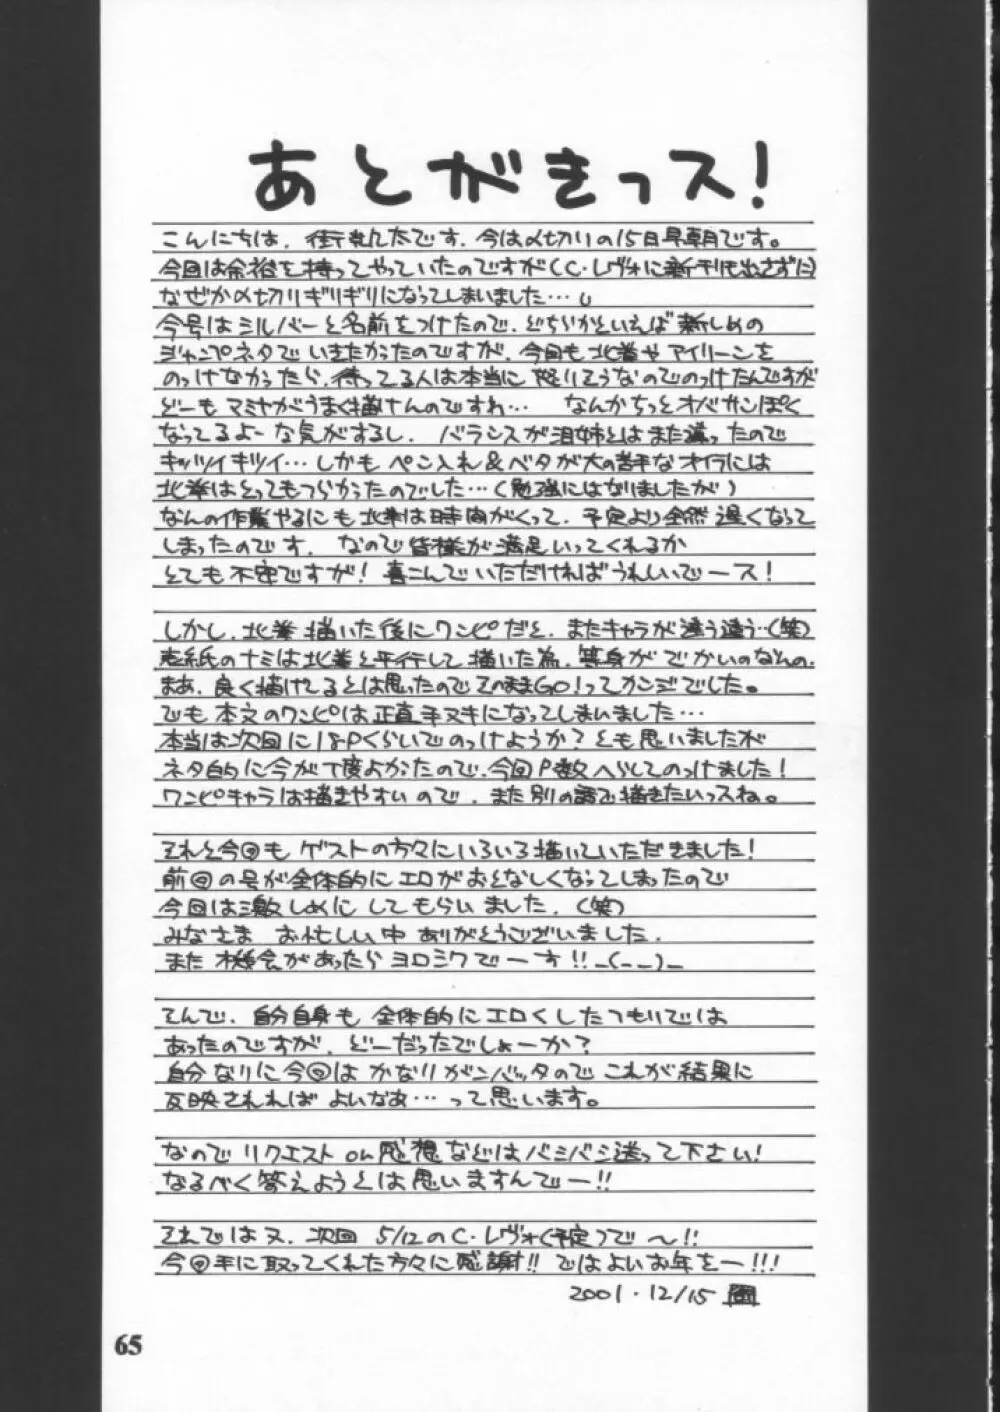 あとがきっス!
こんにちは、街乱太です、今は〆切りの15日早朝です。
今回は余裕を持ってやっていたのですが(C・レヴォに新刊も出さずに)
なぜか〆切りギリギリになってしまいました…
今号はシルバーと名前をつけたので、どちらかといえば新しめの
ジャンプネタでいきたかったのですが、今回も北斗やアイリーンを
のっけなかったら、待ってる人は本当に怒りそうなのでのっけたんですが
どーもマミヤがうまく描けんのですわ… なんかちっとオバサンぽく
なってるよーな気がするし、バランスが泪姉とはまた違ったので
キッツイキツイ…しかもペン入れ&ベタが大の苦手なオイラには
北斗はとってもつらかったのでした…(勉強にはなりましたが)
なんの作業やるにも北斗は時間がくって、予定より全然遅くなって
しまったのです、なので皆様が満足いってくれるか
とても不安ですが!喜こんでいただければうれしいでース!
しかし、北斗描いた後にワンピだと、またキャラが違う違う…(笑)
表紙のナミは北斗と平行して描いた為、等身がでかいのなんの、
まあ、良く描けてるとは思ったのでそのままGO!ってカンジでした。
でも本文のワンピは正直手ヌキになってしまいました…
本当は次回に18Pくらいでのっけようか?とも思いましたが
ネタ的に今が丁度よかったので、今回P数へらしてのっけました!
ワンピキャラは描きやすいので、また別の話で描きたいっスね。
それと今回もゲストの方々にいろいろ描いていただきました!
前回の号が全体的にエロがおとなしくなってしまったので
今回は激しめにしてもらいました、(笑)
みなさまお忙しい中ありがとうございました、
また機会があったらヨロシクでーす!!_(_ _)_
そんで、自分自身も全体的にエロくしたつもりでは
あったのですが、どーだったでしょーか?
自分なりに今回はかなりガンバッタのでこれが結果に
反映されればよいなあ…って思います。
なのでリクエストon感想などはバシバシ送って下さい!
なるべく答えようとは思いますんでー!!
それでは又、次回5/12のC・レヴォ(予定)で〜!!
今回手に取ってくれた方々に感謝!!ではよいお年をー!!!
2001.12/15
65